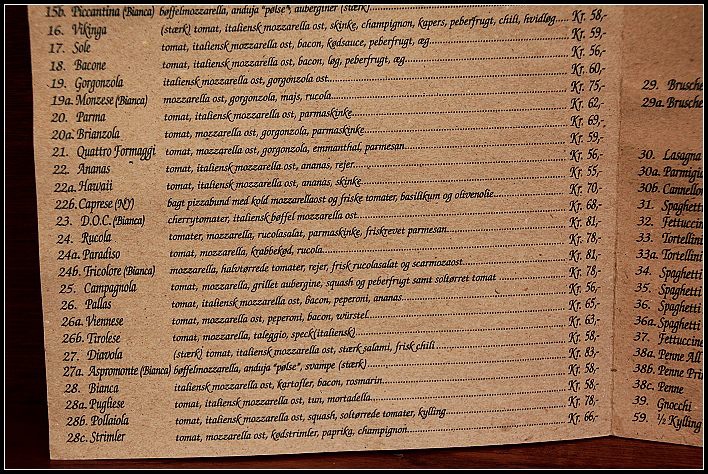 15b. Piccantina (Bianca) bøffelmozzarella, anduja "pølse", auberginer (stærk)
16. Vikinga (stærk) tomat, italiensk mozzarella ost, skinke, champignon, kapers, peberfrugt, chili, hvidløg..... Kr. 58,-
17. Sole tomat, italiensk mozzarella ost, bacon, kødsauce, peberfrugt, æg..... Kr. 59,-
18. Bacone tomat, italiensk mozzarella ost, bacon, løg, peberfrugt, æg..... Kr. 56,-
19. Gorgonzola italiensk mozzarella ost, gorgonzola ost..... Kr. 60,-
19a. Monzese (Bianca) mozzarella ost, gorgonzola, majs, rucola..... Kr. 75,-
20. Parma tomat, italiensk mozzarella ost, parmaskinke..... Kr. 62,-
20a. Brianzola tomat, mozzarella ost, gorgonzola, parmaskinke..... Kr. 69,-
21. Quattro Formaggi tomat, mozzarella ost, gorgonzola, emmanthal, parmesan..... Kr. 59,-
22. Ananas tomat, italiensk mozzarella ost, ananas, rejer..... Kr. 56,-
22a. Hawaii tomat, italiensk mozzarella ost, ananas, skinke..... Kr. 55,-
22b. Caprese (NY) bagt pizzabund med kold mozzarellaost og friske tomater, basilikum og olivenolie..... Kr. 70,-
23. D.O.C. (Bianca) cherrytomater, italiensk bøffel mozzarella ost..... Kr. 68,-
24. Rucola tomater, mozzarella, rucolasalat, parmaskinke, friskrevet parmesan..... Kr. 81,-
24a. Paradiso tomat, mozzarella, krabbekød, rucola..... Kr. 78,-
24b. Tricolore (Bianca) mozzarella, halvtørrede tomater, rejer, frisk rucolasalat og scarmozaost..... Kr. 81,-
25. Campagnola tomat, mozzarella, grillet aubergine, squash og peberfrugt samt soltørret tomat..... Kr. 78,-
26. Pallas tomat, italiensk mozzarella ost, bacon, peperoni, ananas..... Kr. 56,-
26a. Viennese tomat, mozzarella ost, peperoni, bacon, würstel..... Kr. 65,-
26b. Tirolese tomat, mozzarella, taleggio, speck(italiensk)..... Kr. 63,-
27. Diavola (stærk) tomat, italiensk mozzarella ost, stærk salami, frisk chili..... Kr. 58,-
27a. Aspromonte (Bianca) bøffelmozzarella, anduja "pølse", svampe (stærk)..... Kr. 83,-
28. Bianca italiensk mozzarella ost, kartofler, bacon, rosmarin..... Kr. 58,-
28a. Pugliese tomat, italiensk mozzarella ost, tun, mortadella..... Kr. 58,-
28b. Pollaiola tomat, italiensk mozzarella ost, squash, soltørrede tomater, kylling..... Kr. 78,-
28c. Strimler tomat, mozzarella ost, kødstrimler, paprika, champignon..... Kr. 66,-
29. Brusche
29a. Brusche
30. Lasagna
30a. Parmigia
30b. Cannellon
31. Spaghetti
32. Fettuccin
33. Tortellini
33a. Tortellini
34. Spaghetti
35. Spaghetti
36. Spaghetti
36a. Spaghetti
37. Fettuccine
38a. Penne All
38b. Penne Pri
38c. Penne
39. Gnocchi
59. ½ Kylling